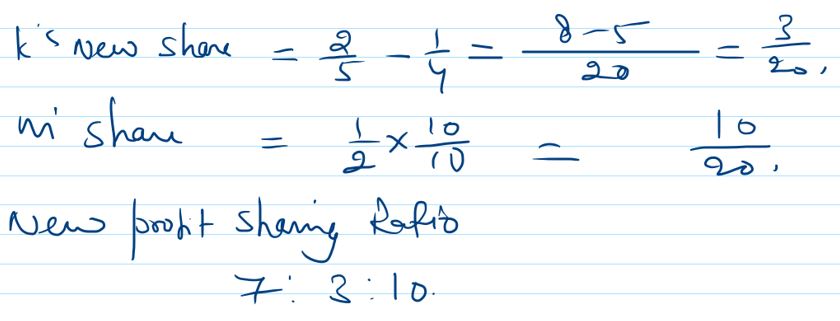 k's new share = 2/5 - 1/4 = 8-5/20 = 3/20,
m' share = 1/2 × 10/10 = 10/20,
New profit sharing Ratio
7: 3:10.